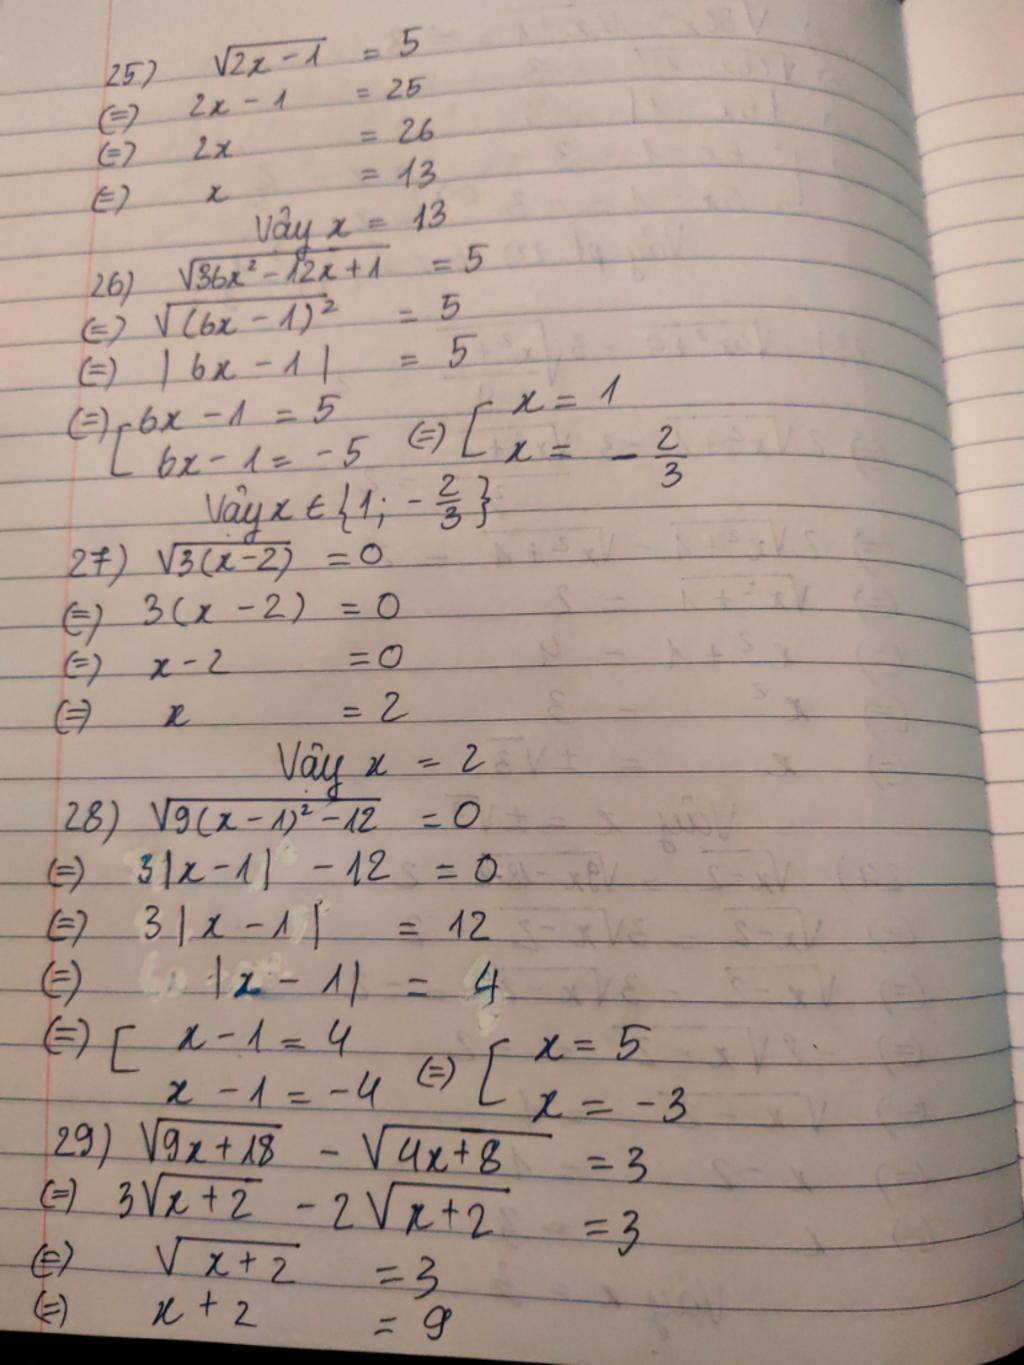 25) √2x - 1 = 5
(=) 2x - 1 = 25
(=) 2x = 26
(=) x = 13
Vậy x = 13
26) √36x² - 12x + 1 = 5
(=) √(6x - 1)² = 5
(=) | 6x - 1 | = 5
(=) [ 6x - 1 = 5 (=) [ x = 1
6x - 1 = -5 x = - 2/3
Vậy x ∈ {1; - 2/3}
27) √3(x-2) = 0
(=) 3(x - 2) = 0
(=) x - 2 = 0
(=) x = 2
Vậy x = 2
28) √9(x - 1)² - 12 = 0
(=) 3|x - 1| - 12 = 0
(=) 3|x - 1| = 12
(=) |x - 1| = 4
(=) [ x - 1 = 4 (=) [ x = 5
x - 1 = -4 x = -3
29) √9x + 18 - √4x + 8 = 3
(=) 3√x + 2 - 2√x + 2 = 3
(=) √x + 2 = 3
(=) x + 2 = 9